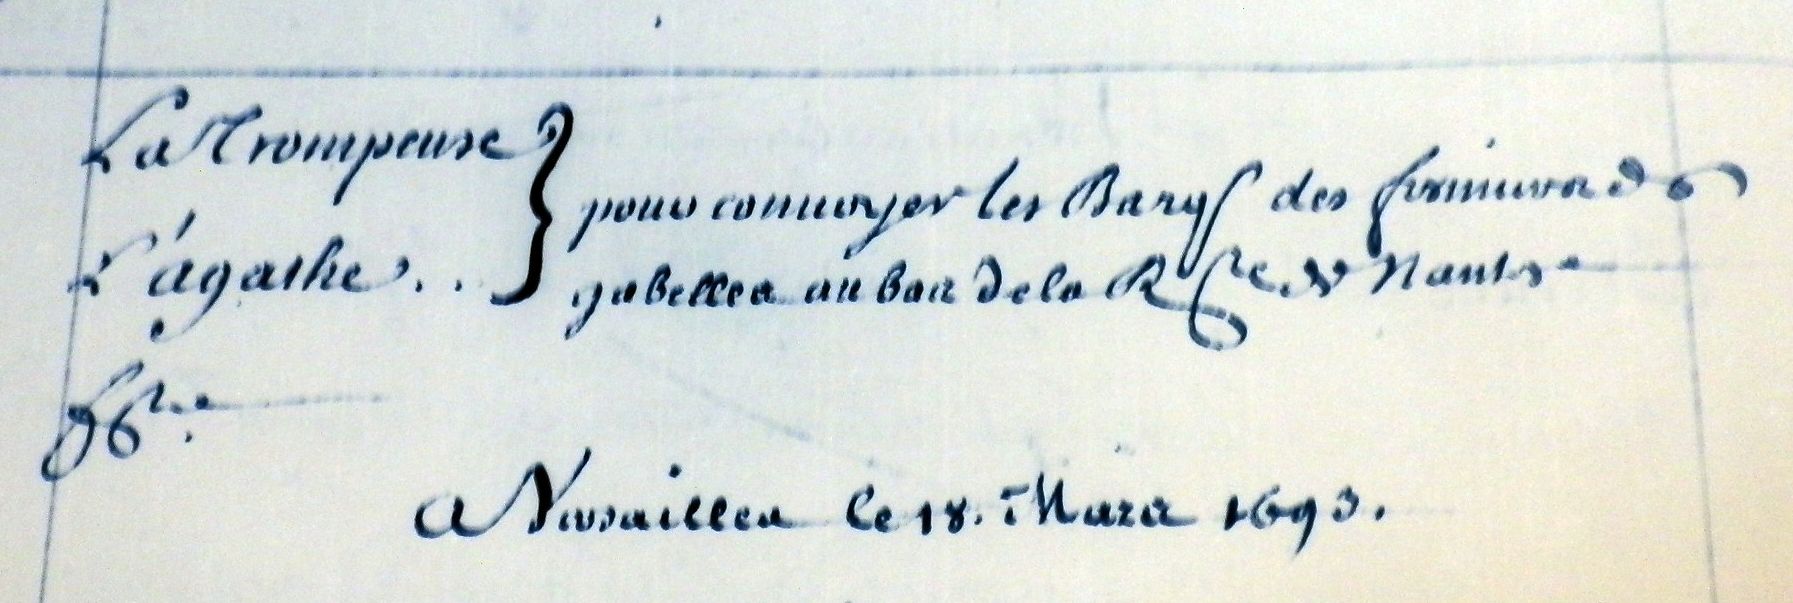 La Trompeuse
L'ágathe . .
pour convoyer les Barqs des fermiers des
gabelles au bas de la Rre de Nantes
A Versailles le 18. Mars 1693.